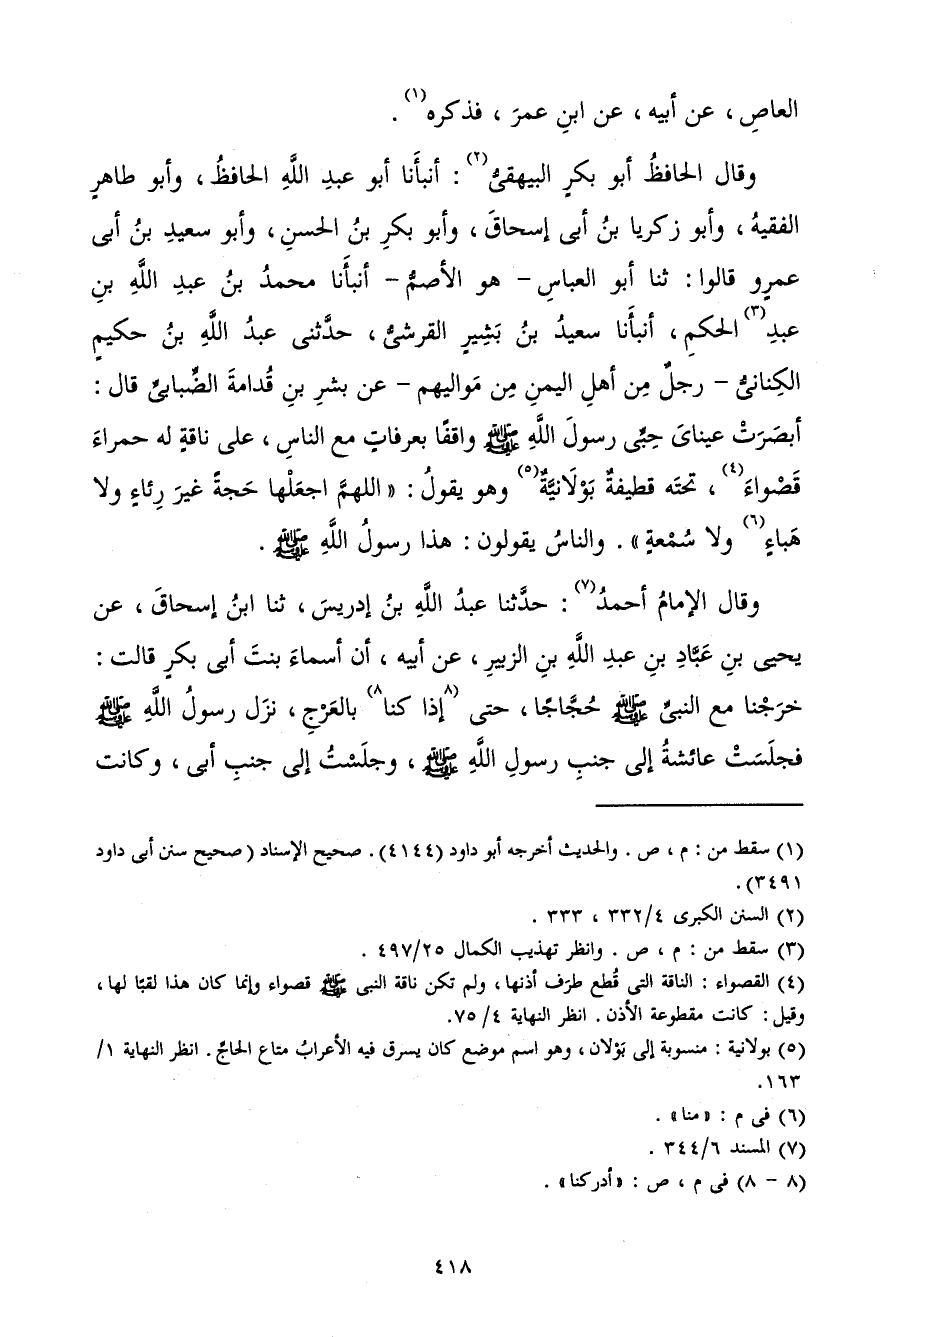 العاصِ ، عن أبيه ، عن ابنِ عمرَ ، فذكره(١) .
وقال الحافظُ أبو بكرٍ البيهقىُّ(٢) : أنبأَنا أبو عبدِ اللَّهِ الحافظُ ، وأبو طاهرٍ
الفقيهُ ، وأبو زكريا بنُ أبى إسحاقَ ، وأبو بكرِ بنُ الحسنِ ، وأبو سعيدِ بنُ أبى
عمرٍو قالوا : ثنا أبو العباسِ - هو الأصمُّ - أنبأَنا محمدُ بنُ عبدِ اللَّهِ بنِ
عبدِ(٣) الحكمِ ، أنبأَنا سعيدُ بنُ بَشِيرٍ القرشىُّ ، حدَّثنى عبدُ اللَّهِ بنُ حكيمٍ
الكِنانىُّ - رجلٌ مِن أهلِ اليمنِ مِن مَواليهم - عن بشرِ بنِ قُدامةَ الضِّبابىِّ قال :
أبصَرَتْ عيناىَ حِبِّى رسولَ اللَّهِ ﷺ واقفًا بعرفاتٍ مع الناسِ ، على ناقةٍ له حمراءَ
قَصْواءَ(٤) ، تحتَه قطيفةٌ بَوْلَانيَّةٌ(٥) وهو يقولُ : « اللهمَّ اجعَلْها حَجةً غيرَ رِئاءٍ ولا
هَباءٍ(٦) ولا سُمْعةٍ » . والناسُ يقولون : هذا رسولُ اللَّهِ ﷺ .
وقال الإمامُ أحمدُ(٧) : حدَّثنا عبدُ اللَّهِ بنُ إدريسَ ، ثنا ابنُ إسحاقَ ، عن
يحيى بنِ عَبَّادِ بنِ عبدِ اللَّهِ بنِ الزبيرِ ، عن أبيه ، أن أسماءَ بنتَ أبى بكرٍ قالت :
خرَجْنا مع النبىِّ ﷺ حُجَّاجًا ، حتى (٨إذا كنا٨) بالعَرْجِ ، نزَل رسولُ اللَّهِ ﷺ
فجلَسَتْ عائشةُ إلى جنبِ رسولِ اللَّهِ ﷺ ، وجلَسْتُ إلى جنبِ أبى ، وكانت
(١) سقط من : م ، ص . والحديث أخرجه أبو داود (٤١٤٤) . صحيح الإسناد (صحيح سنن أبى داود
٣٤٩١) .
(٢) السنن الكبرى ٣٣٢/٤ ، ٣٣٣ .
(٣) سقط من : م ، ص . وانظر تهذيب الكمال ٤٩٧/٢٥ .
(٤) القصواء : الناقة التى قُطع طرَف أذنها ، ولم تكن ناقة النبى ﷺ قصواء وإنما كان هذا لقبًا لها ،
وقيل : كانت مقطوعة الأذن . انظر النهاية ٤ / ٧٥.
(٥) بولانية : منسوبة إلى بَوْلان ، وهو اسم موضع كان يسرق فيه الأعرابُ متاع الحاجِّ . انظر النهاية ١ /
١٦٣.
(٦) فى م : « منا » .
(٧) المسند ٣٤٤/٦ .
(٨ - ٨) فى م ، ص : « أدركنا » .
٤١٨